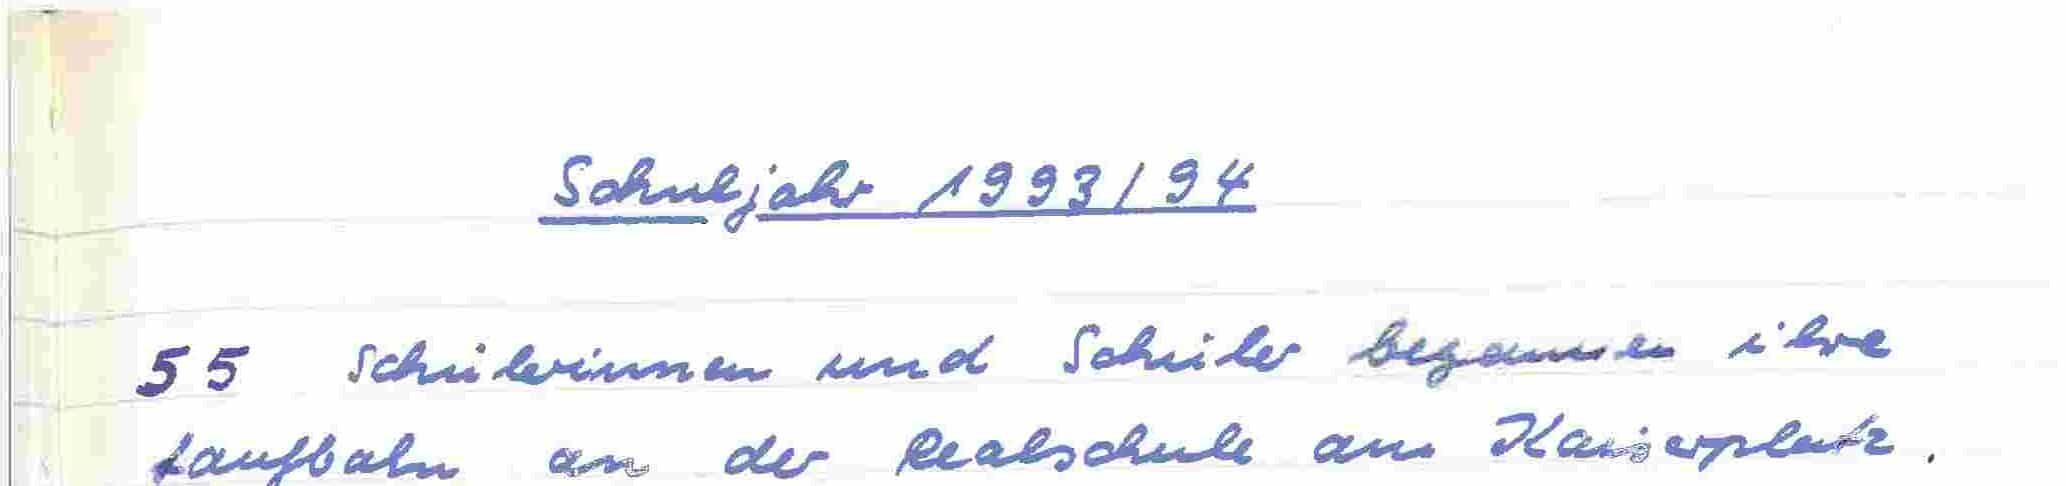 Schuljahr 1993/94
55 Schülerinnen und Schüler begannen ihre
Laufbahn an der Realschule am Kaiserplatz.